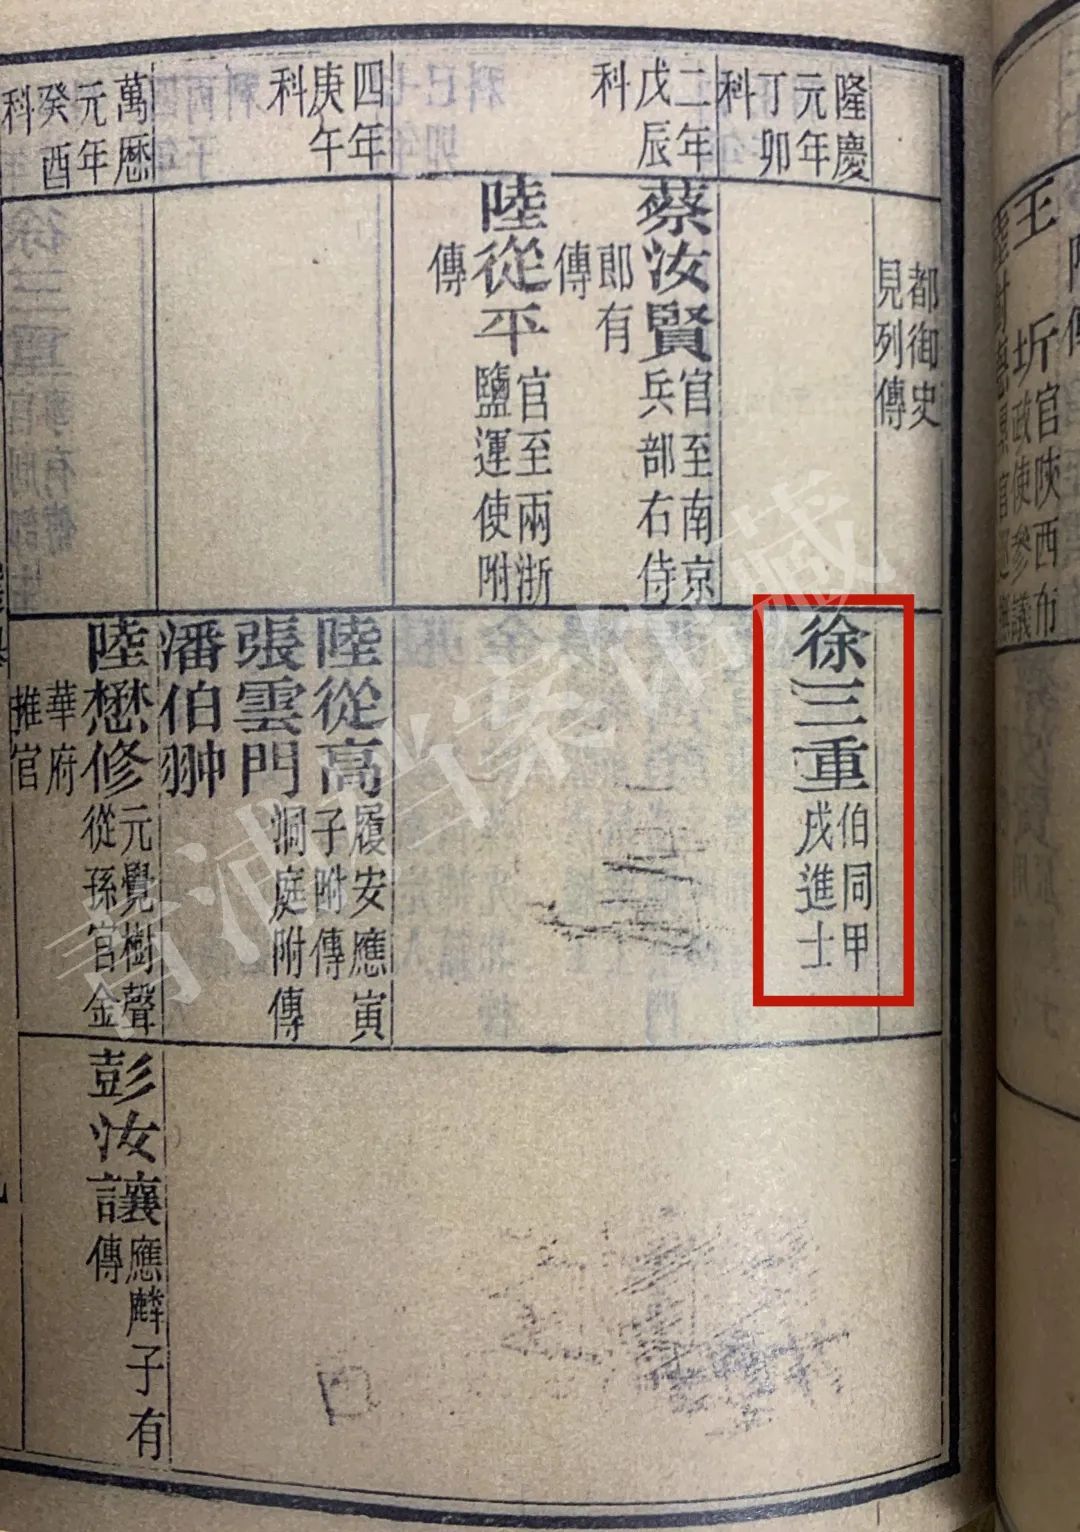 王圻
官陝西布
政使參議
隆慶
元年
丁卯
科
二年
戊辰
科
四年
庚午
科
萬曆
元年
癸酉
科
都御史
見列傳
蔡汝賢
官至南京
兵部右侍
郎有
傳
陸從平
官至兩浙
鹽運使附
傳
徐三重
伯同甲
戌進士
陸從高
履安應寅
子附傳
張雲門
洞庭附傳
潘伯翀
陸懋修
元覺樹聲
從孫官金
華府
推官
彭汝讓
應麟子有
傳
青浦档案馆藏